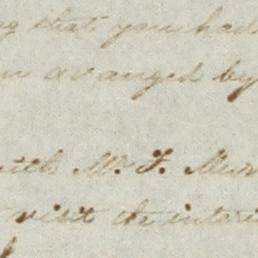 that you had
arranged by
with Mr. F. Mur
visit the interi